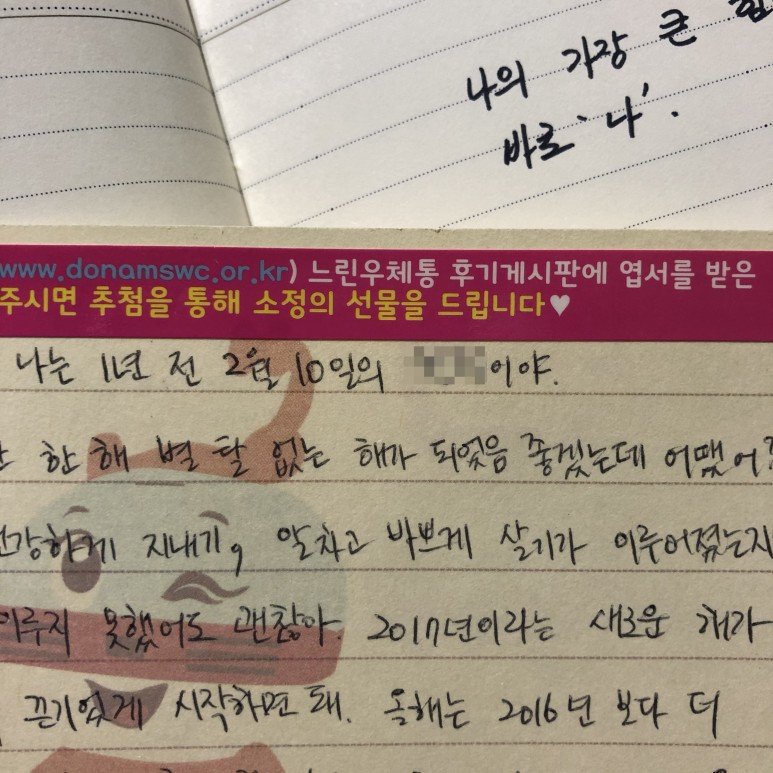 나의 가장 큰 힘
바로 '나'.
www.donamswc.or.kr) 느린우체통 후기게시판에 엽서를 받은
주시면 추첨을 통해 소정의 선물을 드립니다♥
나는 1년 전 2월 10일의 이야.
한 해 별 탈 없는 해가 되었음 좋겠는데 어땠어?
건강하게 지내기, 알차고 바쁘게 살기가 이루어졌는지
이루지 못했어도 괜찮아. 2017년이라는 새로운 해가
끈기있게 시작하면 돼. 올해는 2016년 보다 더